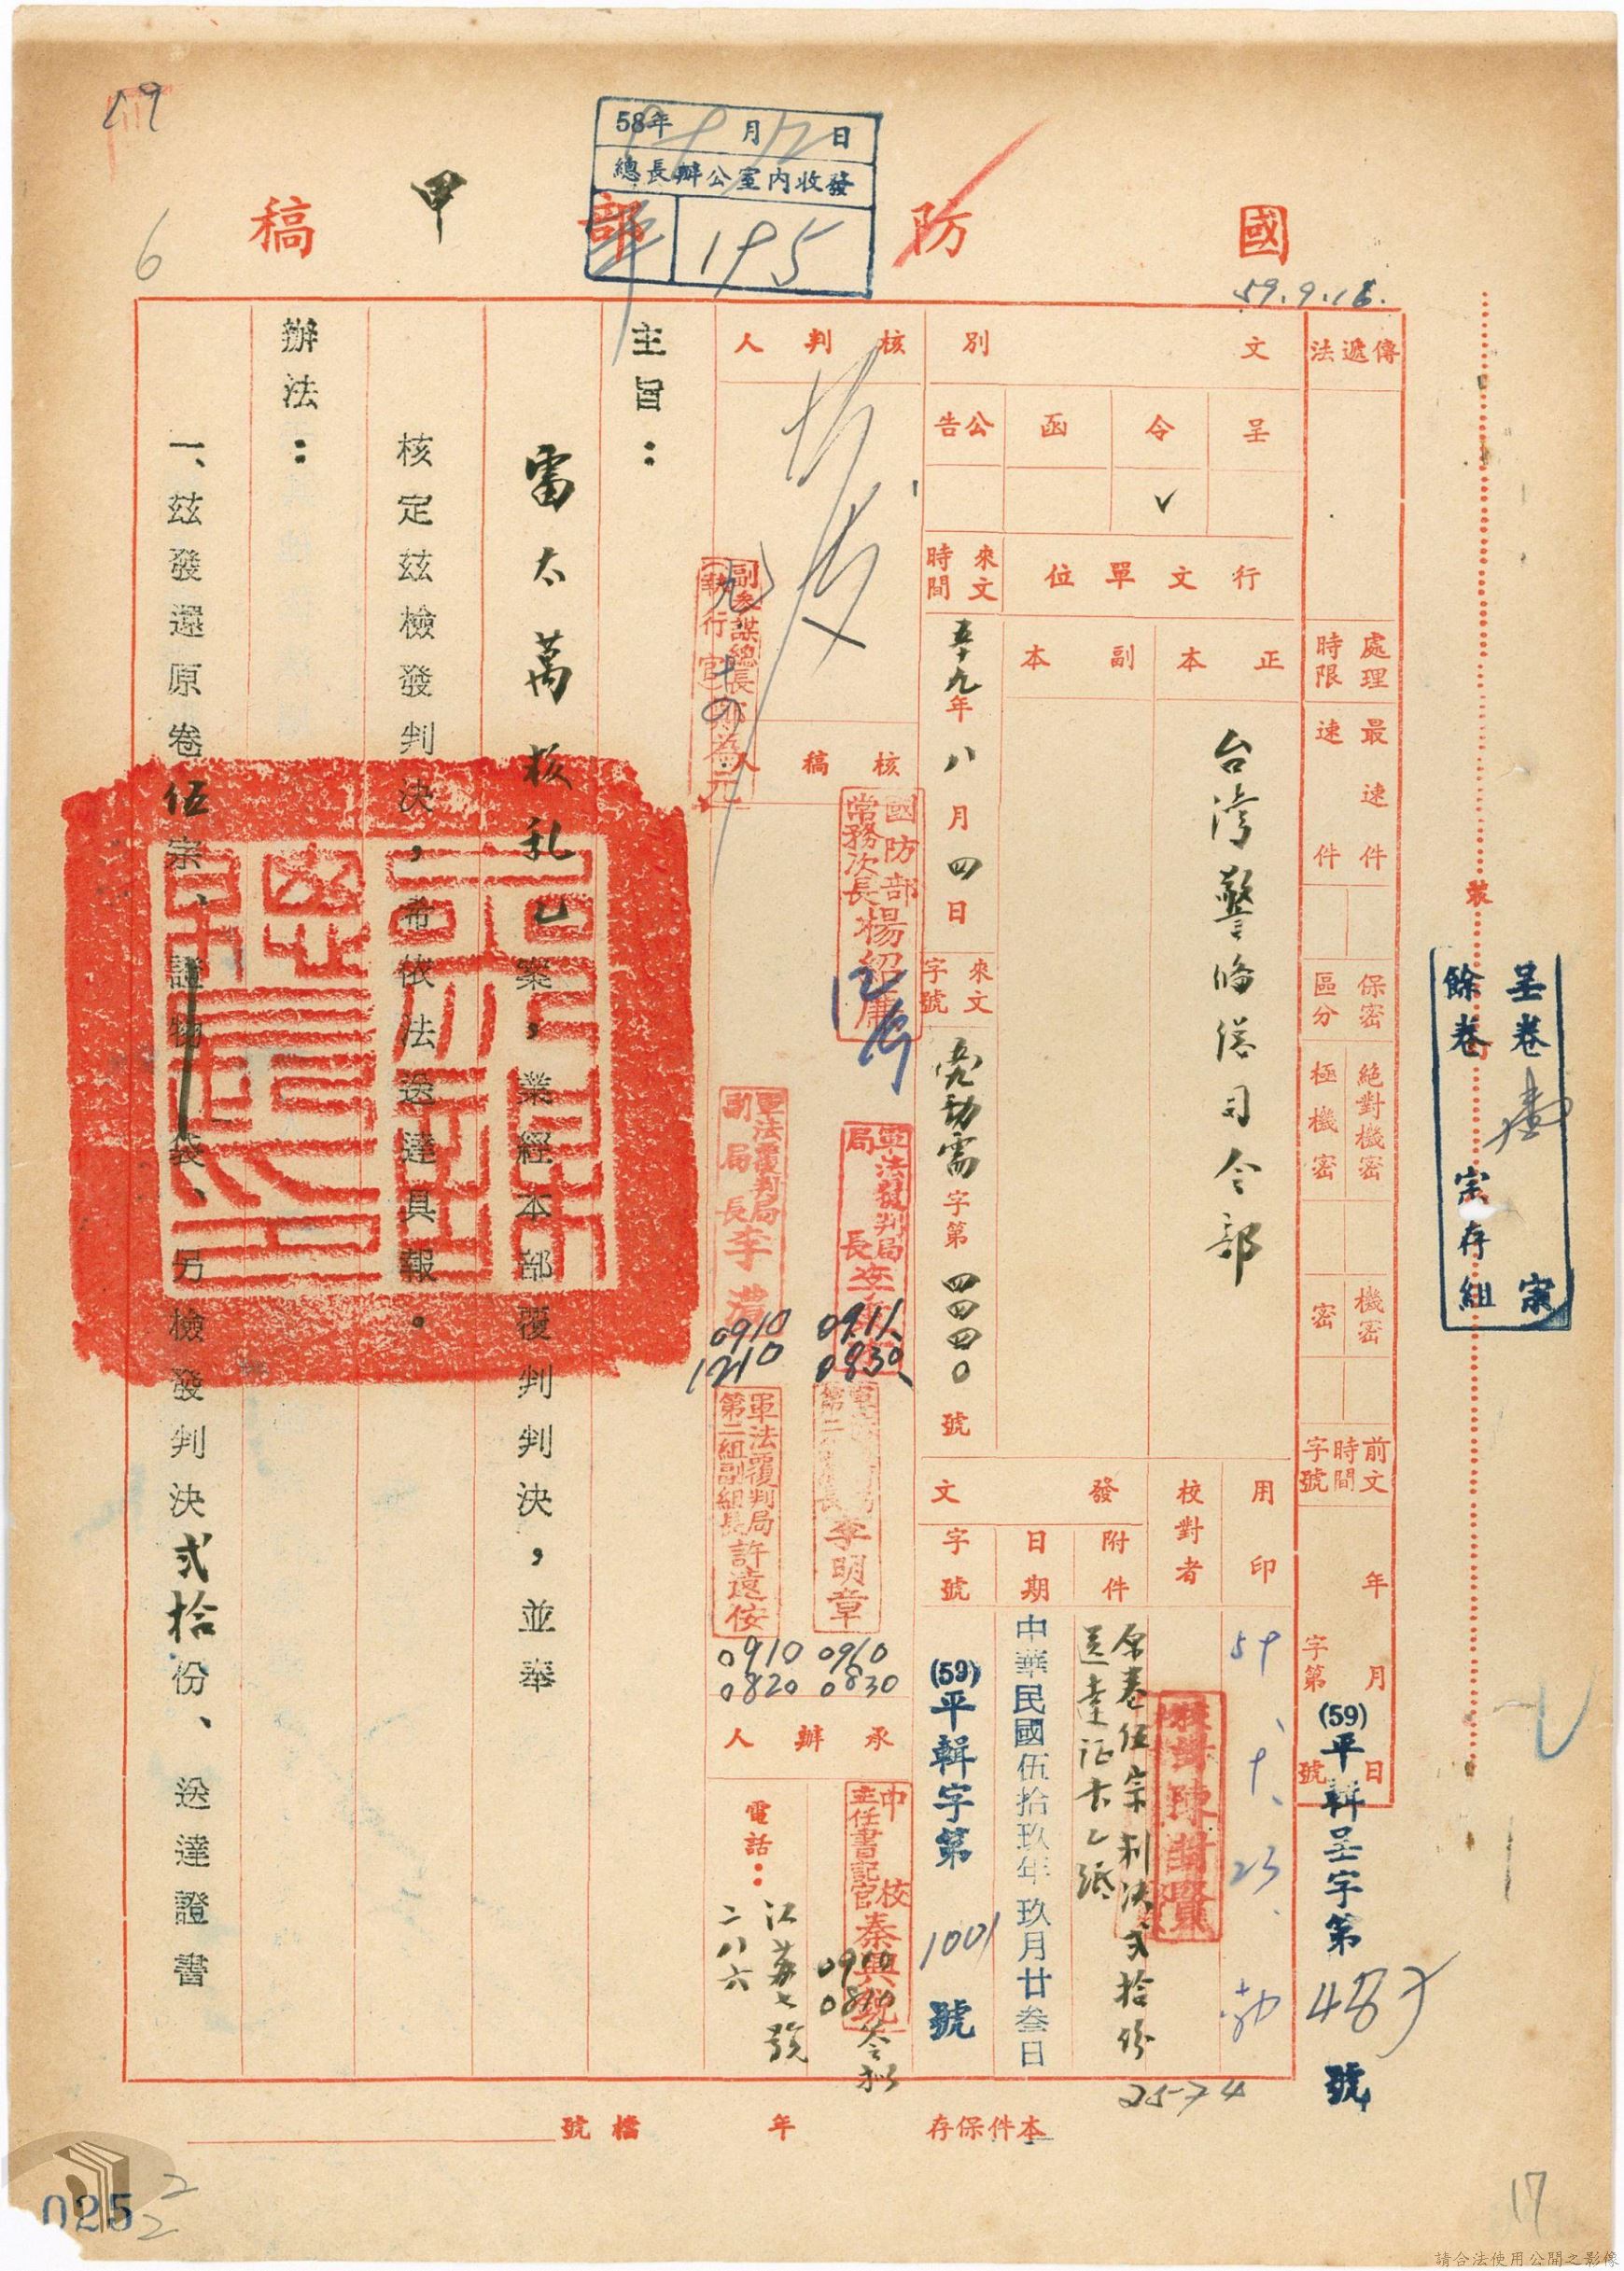 國防部稿
甲
58年 月12日
總長辦公室內收發
195
59.9.16.
6
傳遞法
處理時限
最速件
速件
保密區分
絕對機密
極機密
機密
密
前文時間字號
年 月 日
字第 號
(59)平輯呈字第 號
文別
呈
令 ✓
函
公告
行文單位
正本
副本
台灣警備總司令部
來文時間
五十九年八月四日
來文字號
字第四四四〇號
用印
59、9、23、
校對者
發文
附件
原卷伍宗判決弍拾份
送達證書乙紙
日期
中華民國伍拾玖年玖月廿叁日
字號
(59)平輯字第1001號
核判人
副參謀總長(執行官)
核稿人
國防部常務次長楊紹廉
軍法覆判局局長
0911
0830
軍法覆判局副局長李濃
0910
1210
李明章
0910
0830
軍法覆判局第二組副組長許遠俊
0910
0820
承辦人
中校主任書記官秦興銳
0910
0810
簽擬
電話：
二八六
主旨：
雷太萬核亂乙案，業經本部覆判判決，並奉
核定茲檢發判決，希依法送達具報。
辦法：
一、茲發還原卷伍宗、證物 袋、另檢發判決弍拾份、送達證書
裝
呈卷 宗
餘卷 宗存組
本件保存 年 檔號
2574
025
2
2
17
請合法使用公開之影像